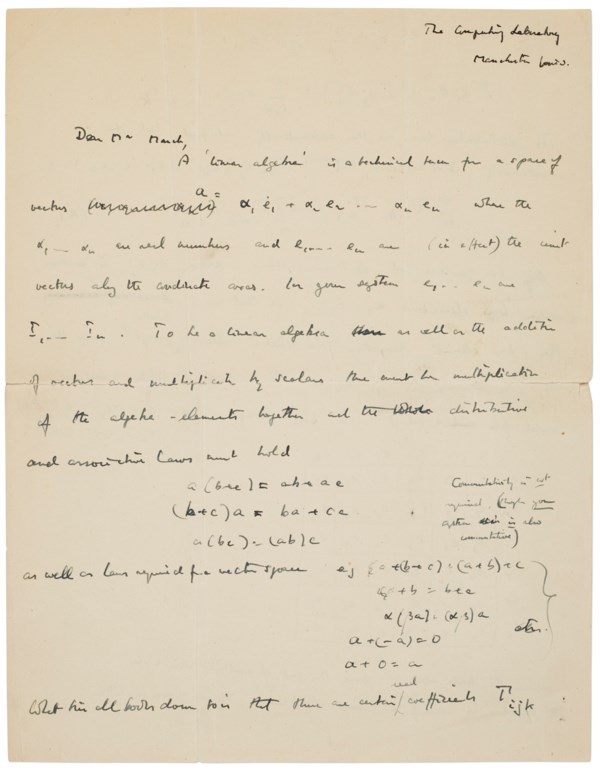 The Computing Laboratory
Manchester Univ.
Dear Mr March,
A 'linear algebra' is a technical term for a space of
vectors a = α₁ e₁ + α₂ e₂ ... αₙ eₙ where the
α₁ ... αₙ are real numbers and e₁ ... eₙ are (in effect) the unit
vectors along the coordinate axes. In your system e₁ .. eₙ are
I₁ ... Iₙ . To be a linear algebra as well as the addition
of vectors and multiplication by scalars there must be multiplication
of the algebra-elements together and the distributive
and associative laws must hold
a(b+c) = ab + ac
(b+c)a = ba + ca
a(bc) = (ab)c
Commutativity is not
required. (Though your
system is also
commutative)
as well as laws required for vector space e.g. a+(b+c) = (a+b)+c
a+b = b+a
α(βa) = (αβ)a
etc.
a+(-a) = 0
a+0 = a
What this all boils down to is that there are certain real coefficients Γijk